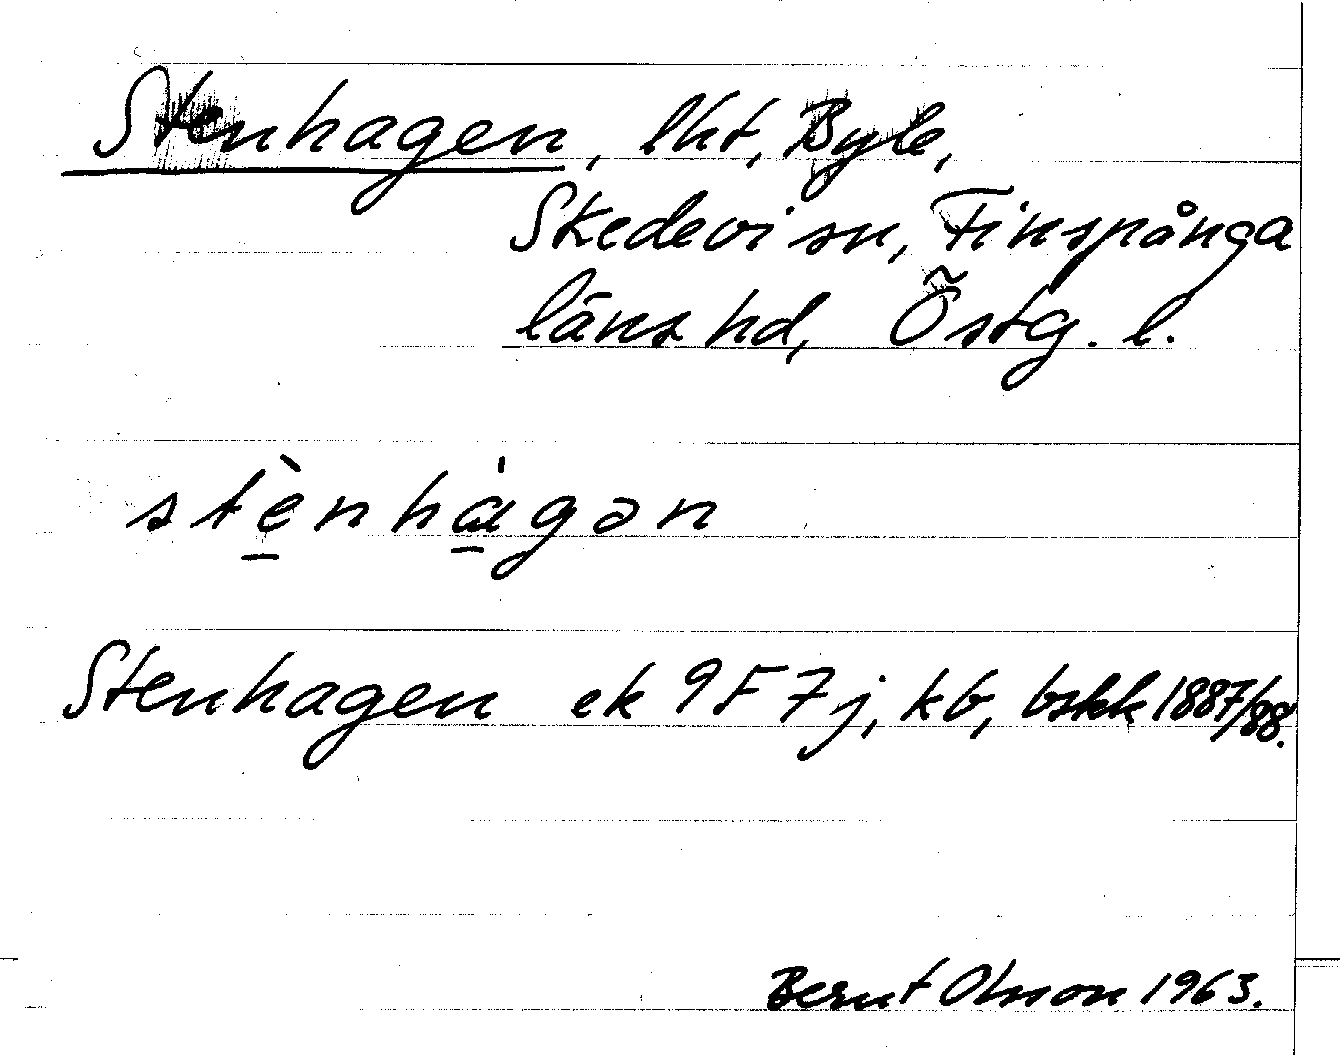 Stenhagen, lht, Byle,
Skedevi sn, Finspånga
läns hd, Östg. l.
stè̱nhà̱gən
Stenhagen ek 9F7j, kb, bskk 1887/88.
Bernt Olsson 1963.